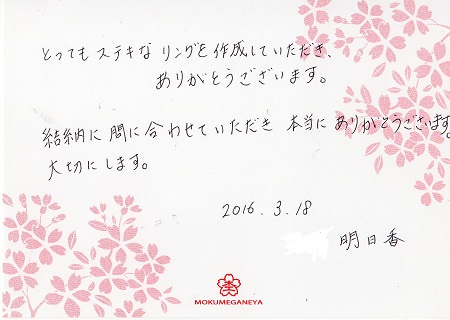 とってもステキな リングを作成していただき、
ありがとうございます。
結納に間に合わせていただき 本当に ありがとうございます。
大切にします。
2016.3.18
明日香
MOKUMEGANEYA